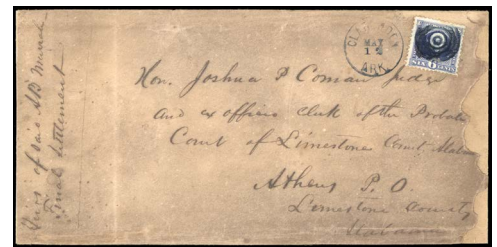 MAY
12
ARK.
SIX CENTS
Hon. Joshua P Coman Judge
and ex officio clerk of the Probate
Court of Limestone County
Athens P. O.
Limestone County
Alabama
of said
Final Settlement